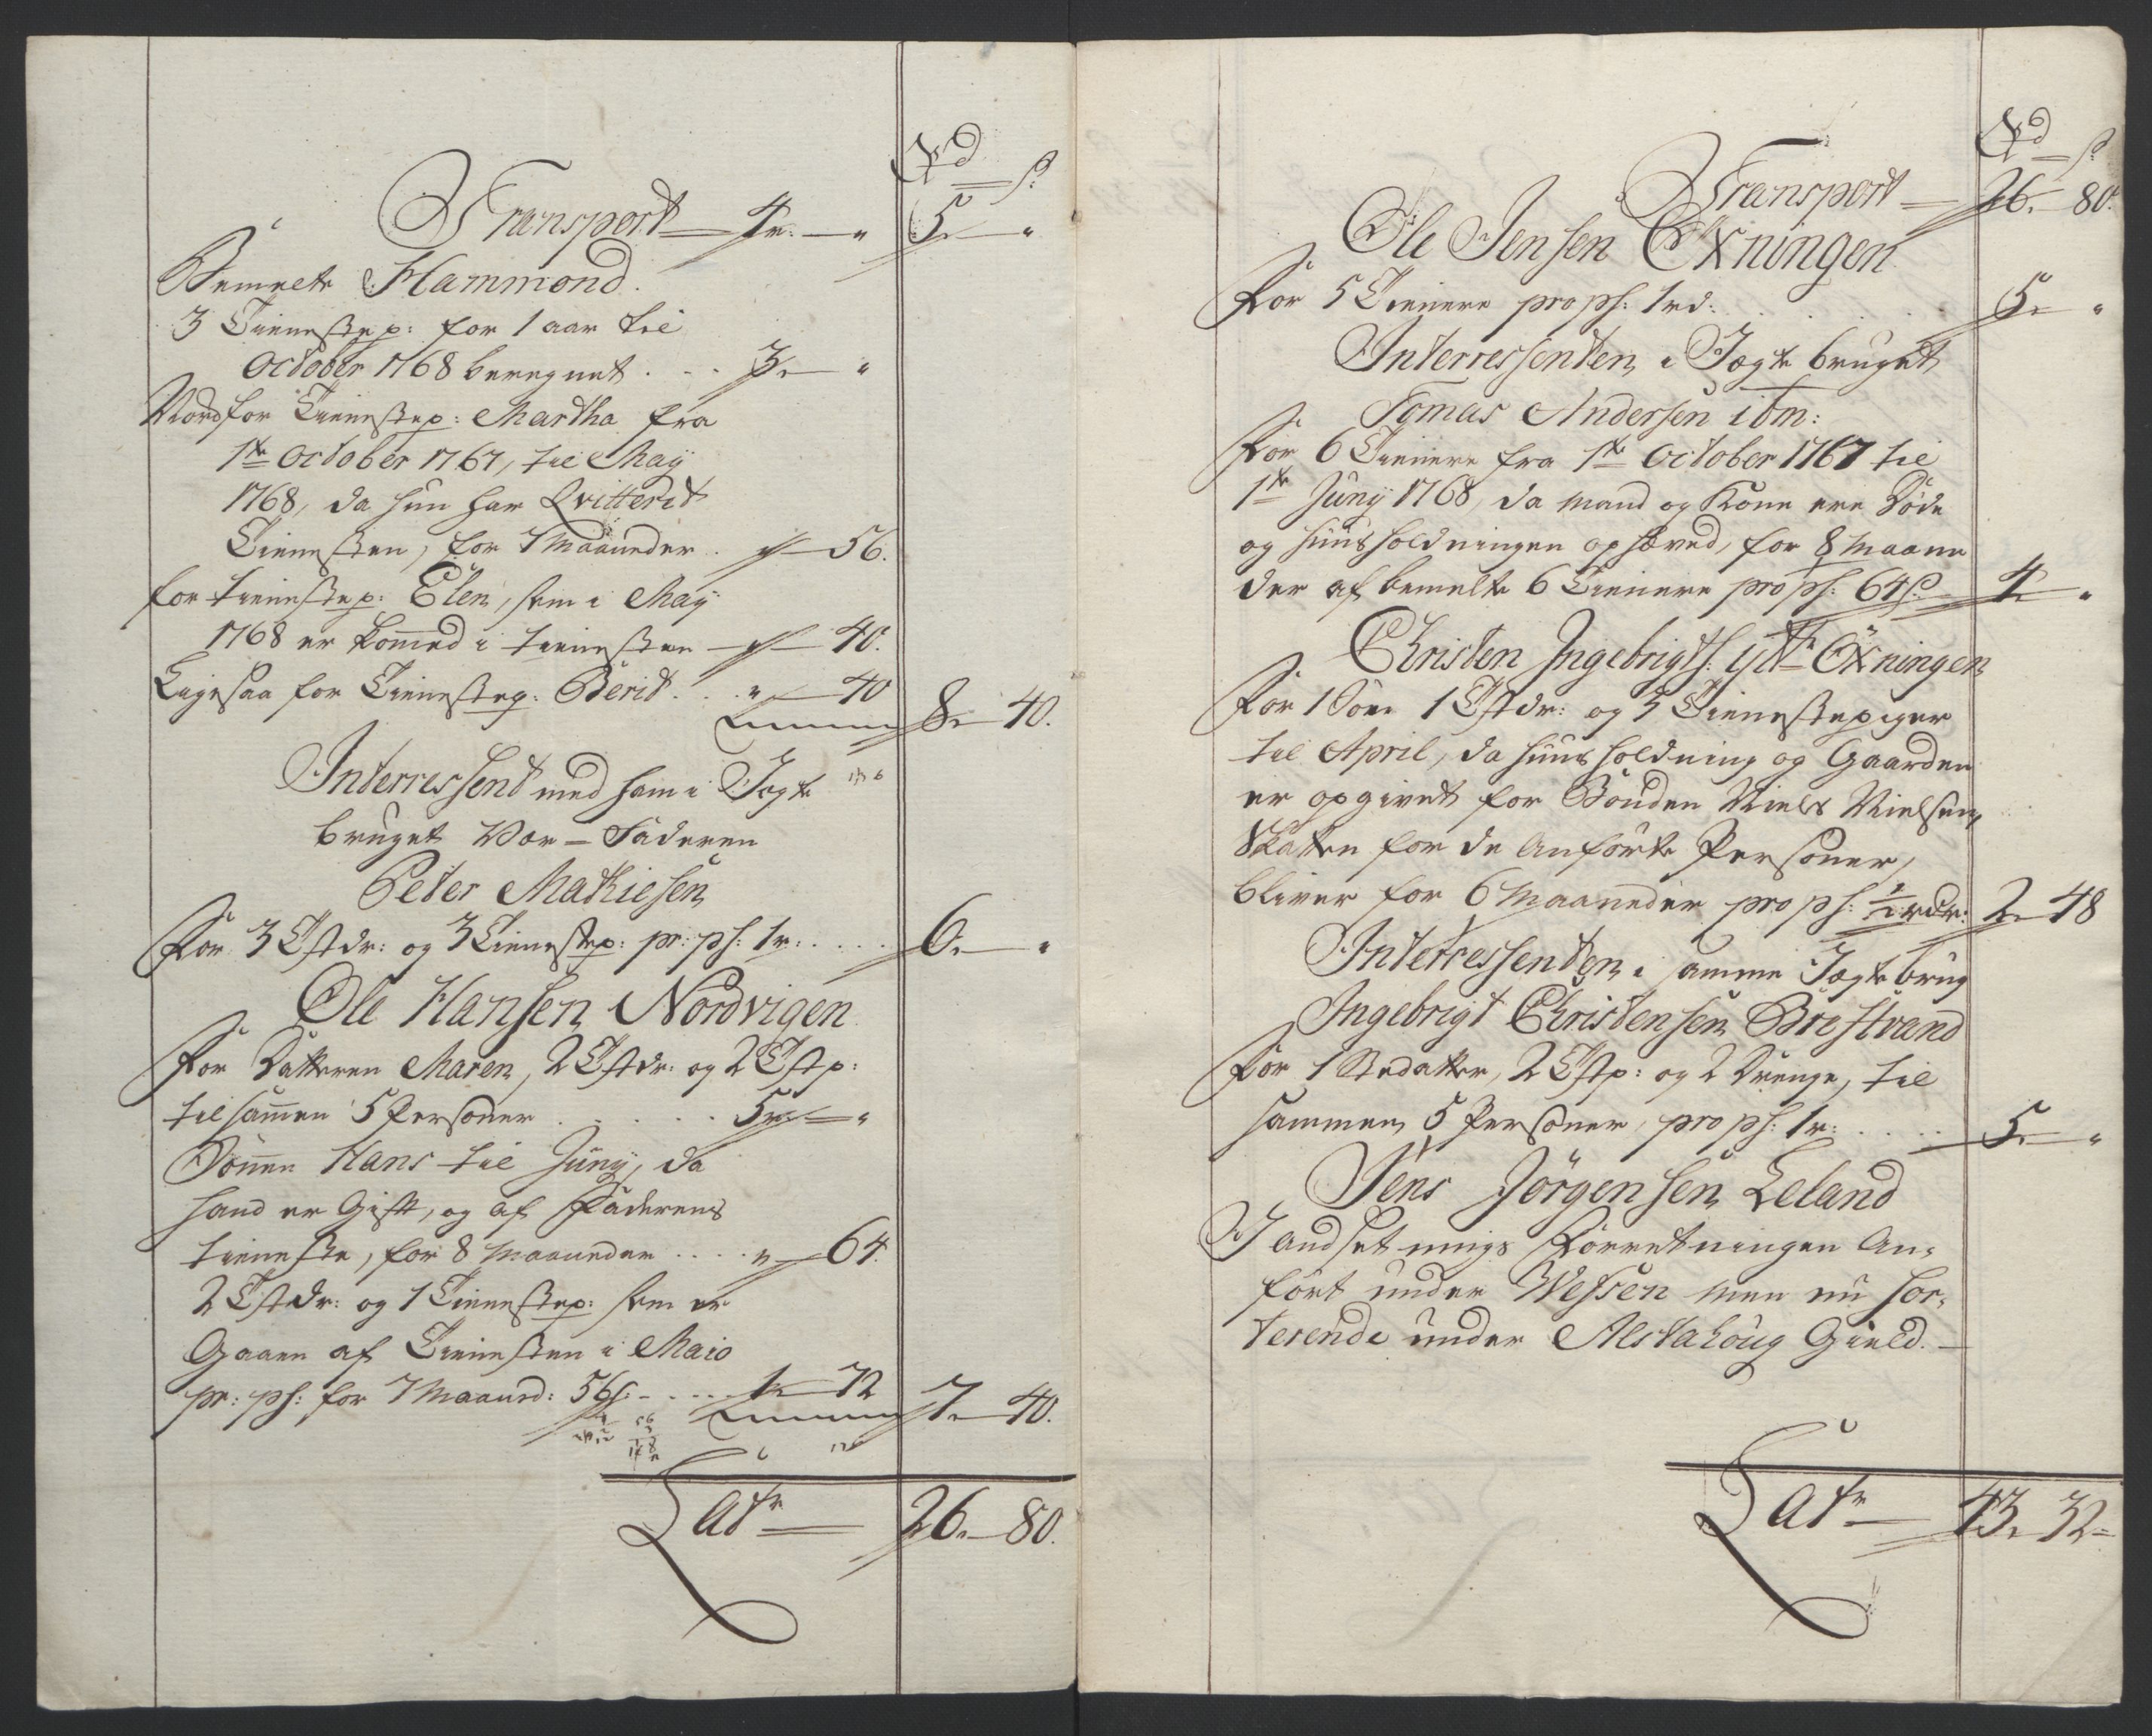 Rd ß
Transport 4r. " 5. "
Bemelte Hammond.
3 Tienestep: for 1 aar til
October 1768 beregnet . . . 3. "
Nordfor Tienestep: Martha fra
1te October 1767, til Maÿ
1768, da hun har Qvitterit
Tienesten, for 7 Maaneder . " 56.
for tienestep: Elen, som i Maÿ
1768 er kommed i tienesten " 40.
Ligesaa for Tienestep: Berit . . " 40
8. 40.
Interressent med ham i Jægte
bruget Var Faderen
Peter Mathiesen
For 3 Tstdr: og 3 Tienestep: pr: ps: 1r: . . . . 6. "
Ole Hansen Nordvigen
For Datteren Maren, 2 Tstdr: og 2 Tstp:
tilsammen 5 Personer . . . . . 5r "
Sönnen Hans til Junÿ, da
hand er Gift, og af Faderens
tieneste, for 8 Maaneder . . . . " 64.
2 Tstdr: og 1 Tienestep: som er
Gaaen af Tienesten i Maio
pr: ps: for 7 Maaned: 56ß: . . . . 1 72 7. 40.
Latr 26. 80.
Rd ß
Transport 26. 80.
Ole Jensen Öxningen
For 5 Tienere pro ps: 1rd: . . . . . 5. "
Interressenten i Jægte bruget
Tomas Andersen ibm:
For 6 Tienere fra 1te October 1767 til
1te Junÿ 1768, da Mand og Kone ere Döde
og huusholdningen ophæved, for 8 Maane
der af bemelte 6 Tienere pro ps: 64ß. 4. "
Christen Ingebrigts: ytr Öxningen
For 1 Sön 1 Tstdr: og 3 Tienestepiger
til April, da huusholdning og Gaarden
er opgivet for Bonden Niels Nielsen,
Skatten for de Anförte Personer,
bliver for 6 Maaneder pro ps: 1/2 rdr: 2. 48
Interressenten i samme Jægte brug
Ingebrigt Christensen Brestrand
For 1 Stedatter, 2 Tstp: og 2 Drenge, til
sammen 5 Personer, pro ps: 1r: . . . . 5. "
Jens Jörgensen Leland
I andsetnings Forretningen An-
fört under Wefsen men nu Sor-
terende under Alstahoug Gield.
Latr 43. 32